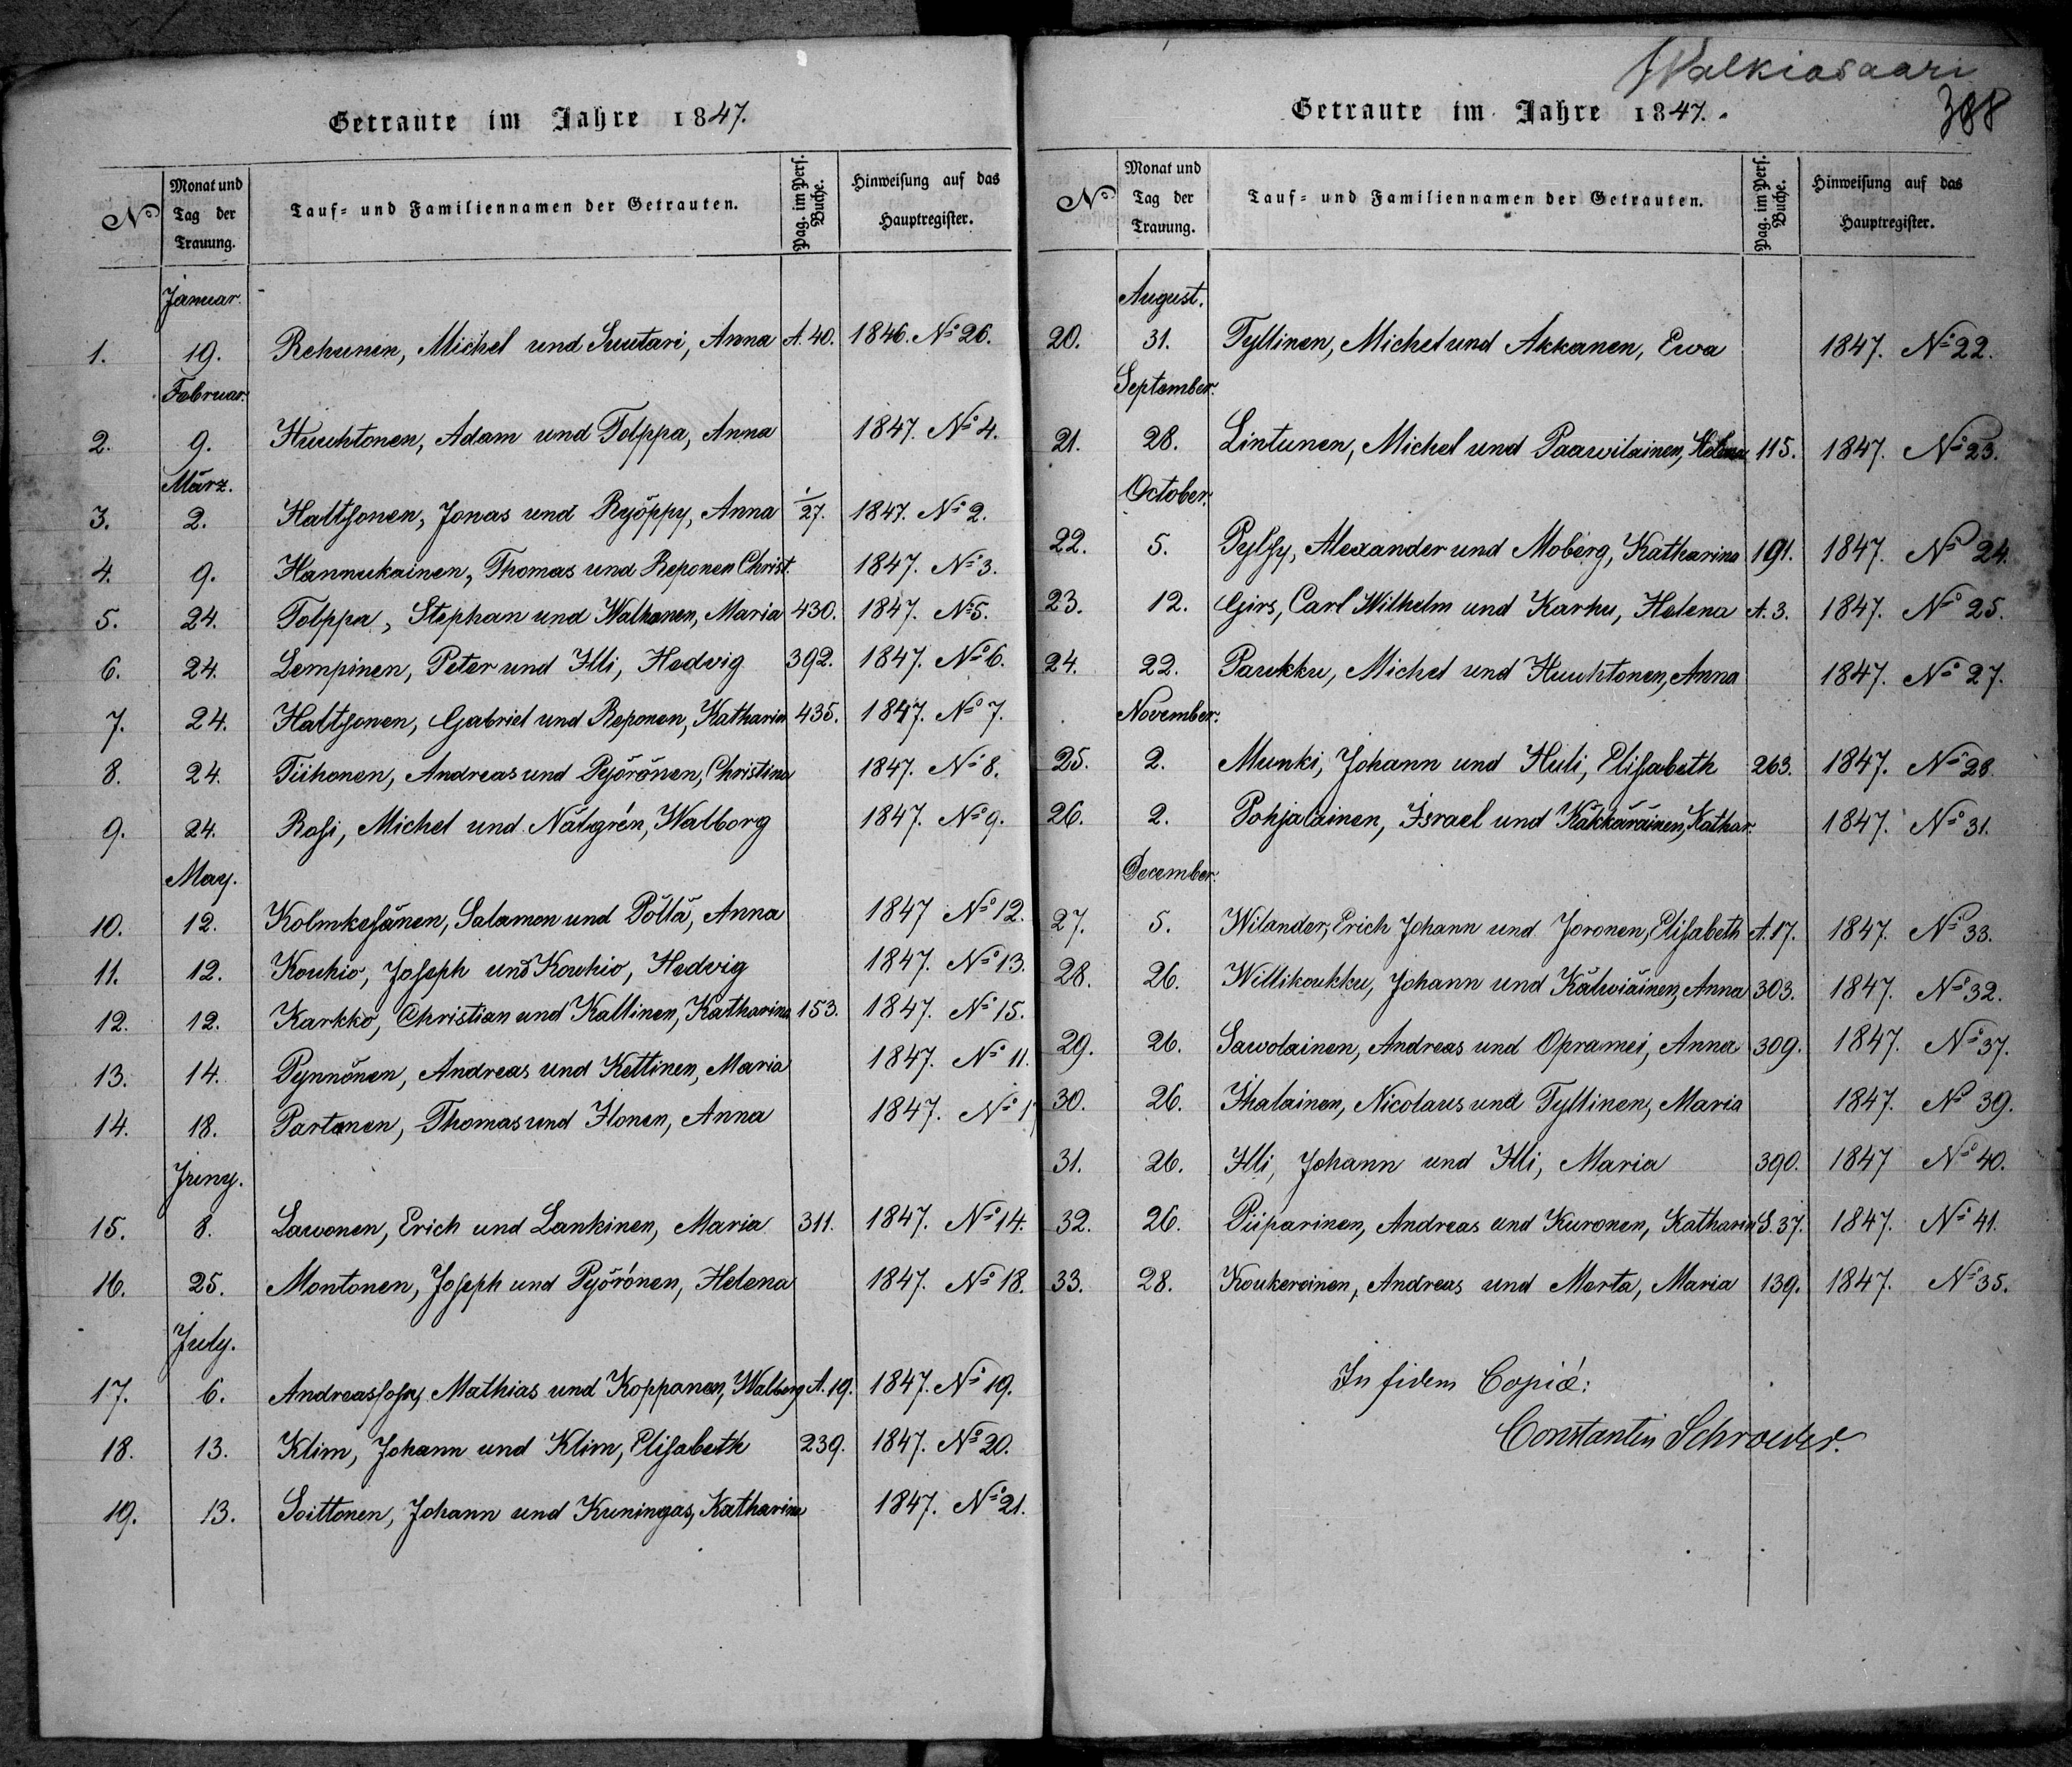 Getraute im Jahre 1847.
No | Monat und Tag der Trauung. | Tauf- und Familiennamen der Getrauten. | Pag. im Pers. Buche. | Hinweisung auf das Hauptregister.
Januar.
1. 19. Rehunen, Michel und Suutari, Anna A. 40. 1846. No 26.
Februar.
2. 9. Huuhtonen, Adam und Tolppa, Anna 1847. No 4.
März.
3. 2. Haltsonen, Jonas und Ryöppy, Anna 1/27. 1847. No 2.
4. 9. Hannukainen, Thomas und Reponen Christ. 1847. No 3.
5. 24. Tolppa, Stephan und Walkonen, Maria 430. 1847. No 5.
6. 24. Lempinen, Peter und Illi, Hedvig 392. 1847. No 6.
7. 24. Haltsonen, Gabriel und Reponen, Katharin 435. 1847. No 7.
8. 24. Tiihonen, Andreas und Pyörönen, Christina 1847. No 8.
9. 24. Rosi, Michel und Nälgrén, Walborg 1847. No 9.
May.
10. 12. Kolmkesänen, Salamon und Pöllä, Anna 1847 No 12.
11. 12. Kouhio, Joseph und Kouhio, Hedvig 1847. No 13.
12. 12. Karkko, Christian und Kallinen, Katharina 153. 1847. No 15.
13. 14. Pynnönen, Andreas und Kettinen, Maria 1847. No 11.
14. 18. Partanen, Thomas und Ilonen, Anna 1847. No
Juny.
15. 8. Sawonen, Erich und Lankinen, Maria 311. 1847. No 14.
16. 25. Montonen, Joseph und Pyörönen, Helena 1847. No 18.
July.
17. 6. Andreassohn, Mathias und Kopponen, Walbrg A. 19. 1847. No 19.
18. 13. Klim, Johann und Klim, Elisabeth 239. 1847. No 20.
19. 13. Soittonen, Johann und Kuningas, Katharina 1847. No 21.
Walkiasaari
388
Getraute im Jahre 1847.
No | Monat und Tag der Trauung. | Tauf- und Familiennamen der Getrauten. | Pag. im Pers. Buche. | Hinweisung auf das Hauptregister.
August.
20. 31. Tyllinen, Michel und Akkanen, Ewa 1847. No 22.
September.
21. 28. Lintunen, Michel und Paawilainen, Helena 115. 1847. No 23.
October.
22. 5. Pylsy, Alexander und Moberg, Katharina 191. 1847. No 24.
23. 12. Girs, Carl Wilhelm und Karhu, Helena A. 3. 1847. No 25.
24. 22. Paukku, Michel und Huuhtonen, Anna 1847. No 27.
November.
25. 2. Munki, Johann und Huli, Elisabeth 263. 1847. No 28.
26. 2. Pohjalainen, Israel und Käkkäräinen, Kathar. 1847. No 31.
December.
27. 5. Wilander, Erich Johann und Joronen, Elisabeth A. 17. 1847. No 33.
28. 26. Willikoukku, Johann und Kälwiäinen, Anna 303. 1847. No 32.
29. 26. Sawolainen, Andreas und Opramei, Anna 309. 1847. No 37.
30. 26. Ihalainen, Nicolaus und Tyllinen, Maria 1847. No 39.
31. 26. Illi, Johann und Illi, Maria 390. 1847 No 40.
32. 26. Piiparinen, Andreas und Kuronen, Katharin S. 37. 1847. No 41.
33. 28. Koukeroinen, Andreas und Marta, Maria 139. 1847. No 35.
In fidem Copiæ:
Constantin Schroeder.